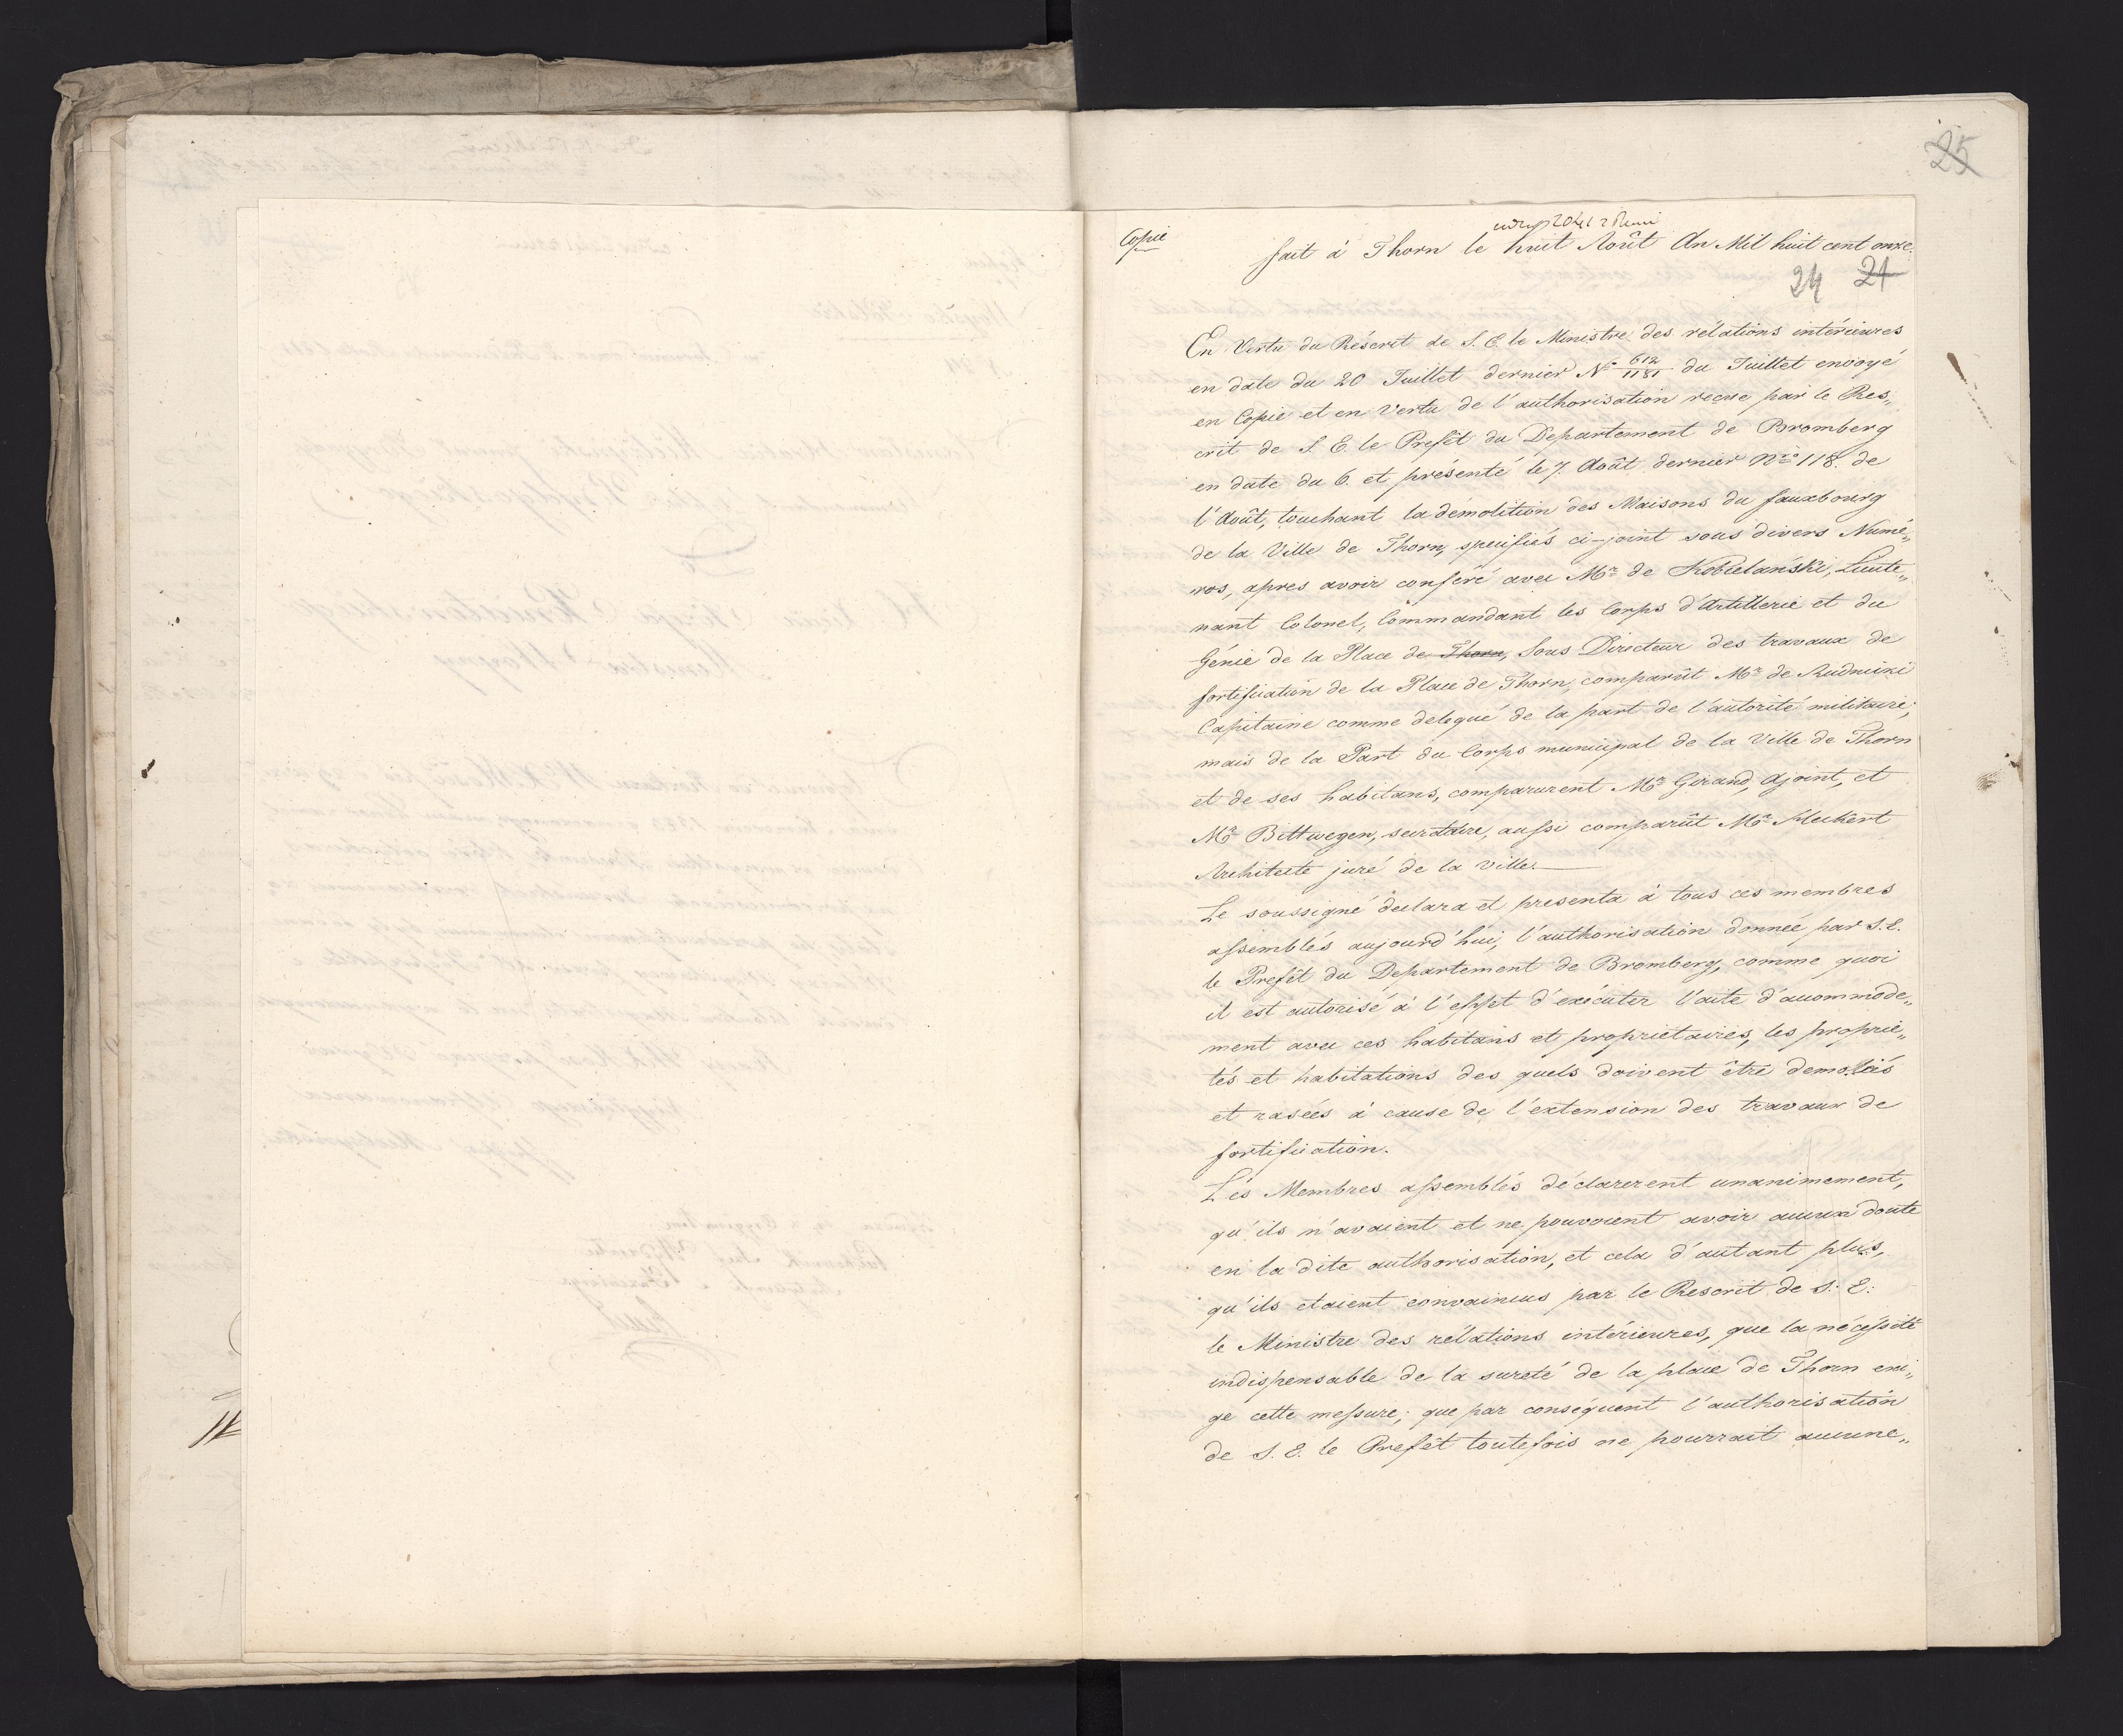 25
Copie
fait à Thorn le huit Août An Mil huit cent onze.
24 21
En Vertu du Réscrit de S. E. le Ministre des rélations intérieures
en date du 20 Juillet dernier No. 612/1181 du Juillet envoyé
en Copie et en vertu de l'authorisation reçue par le Res„
crit de S. E. le Prefêt du Departement de Bromberg
en date du 6. et présenté le 7. Août dernier Nro 118. de
l'Août, touchant la démolition des Maisons du fauxbourg
de la Ville de Thorn, specifiés ci-joint sous divers Numé„
ros, apres avoir conferé avec Mr. de Kobielański, Lieute„
nant Colonel, Commandant les Corps d'Artillerie et du
Génie de la Place de Thorn, Sous Directeur des travaux de
fortification de la Place de Thorn, comparût Mr. de Rudnicki
Capitaine comme delegué de la part de l'autorité militaire;
mais de la Part du Corps municipal de la Ville de Thorn
et de ses habitans, comparurent Mr. Girand, Ajoint, et
Mr. Bittwegen, secretaire, aussi comparût Mr.
Architecte juré de la ville.
Le soussigné declara et presenta à tous ces membres
assemblés aujourd'hui, l'authorisation donnée par S. E.
le Prefêt du Departement de Bromberg, comme quoi
il est autorisé à l'effet d'exécuter l'acte d'accommode„
ment avec ces habitans et proprietaires, les proprie„
tés et habitations des quels doivent être demoliés
et rasées à cause de l'extension des travaux de
fortification.
Les Membres assemblés déclarerent unanimement,
qu'ils n'avaient et ne pouvoient avoir aucun doute
en la dite authorisation, et cela d'autant plus,
qu'ils etaient convaincus par le Rescrit de S: E:
le Ministre des rélations intérieures, que la nécessité
indispensable de la sureté de la place de Thorn exi„
ge cette messure; que par conséquent l'authorisation
de S. E. le Prefêt toutefois ne pourrait aucune„